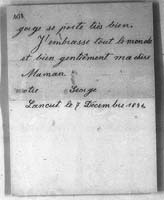 gorge se porte très bien.
J'embrasse tout le monde
et bien gentiment ma chère
Maman.
votre George
Lancut le 7 Décembre 1894